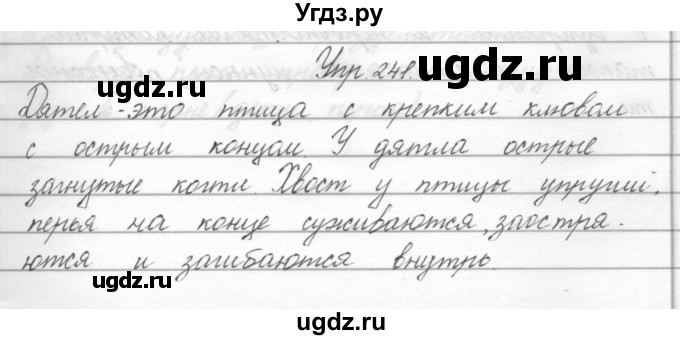 Угдз.ру
Упр. 241.
ugdz.ru ugdz.ru
Дятел - это птица с крепким клювом
с острым концом. У дятла острые
ugdz.ru
загнутые когти. Хвост у птицы упругий,
перья на конце суживаются, заостря-
ugdz.ru ugdz.ru
ются и загибаются внутрь.
ugdz.ru